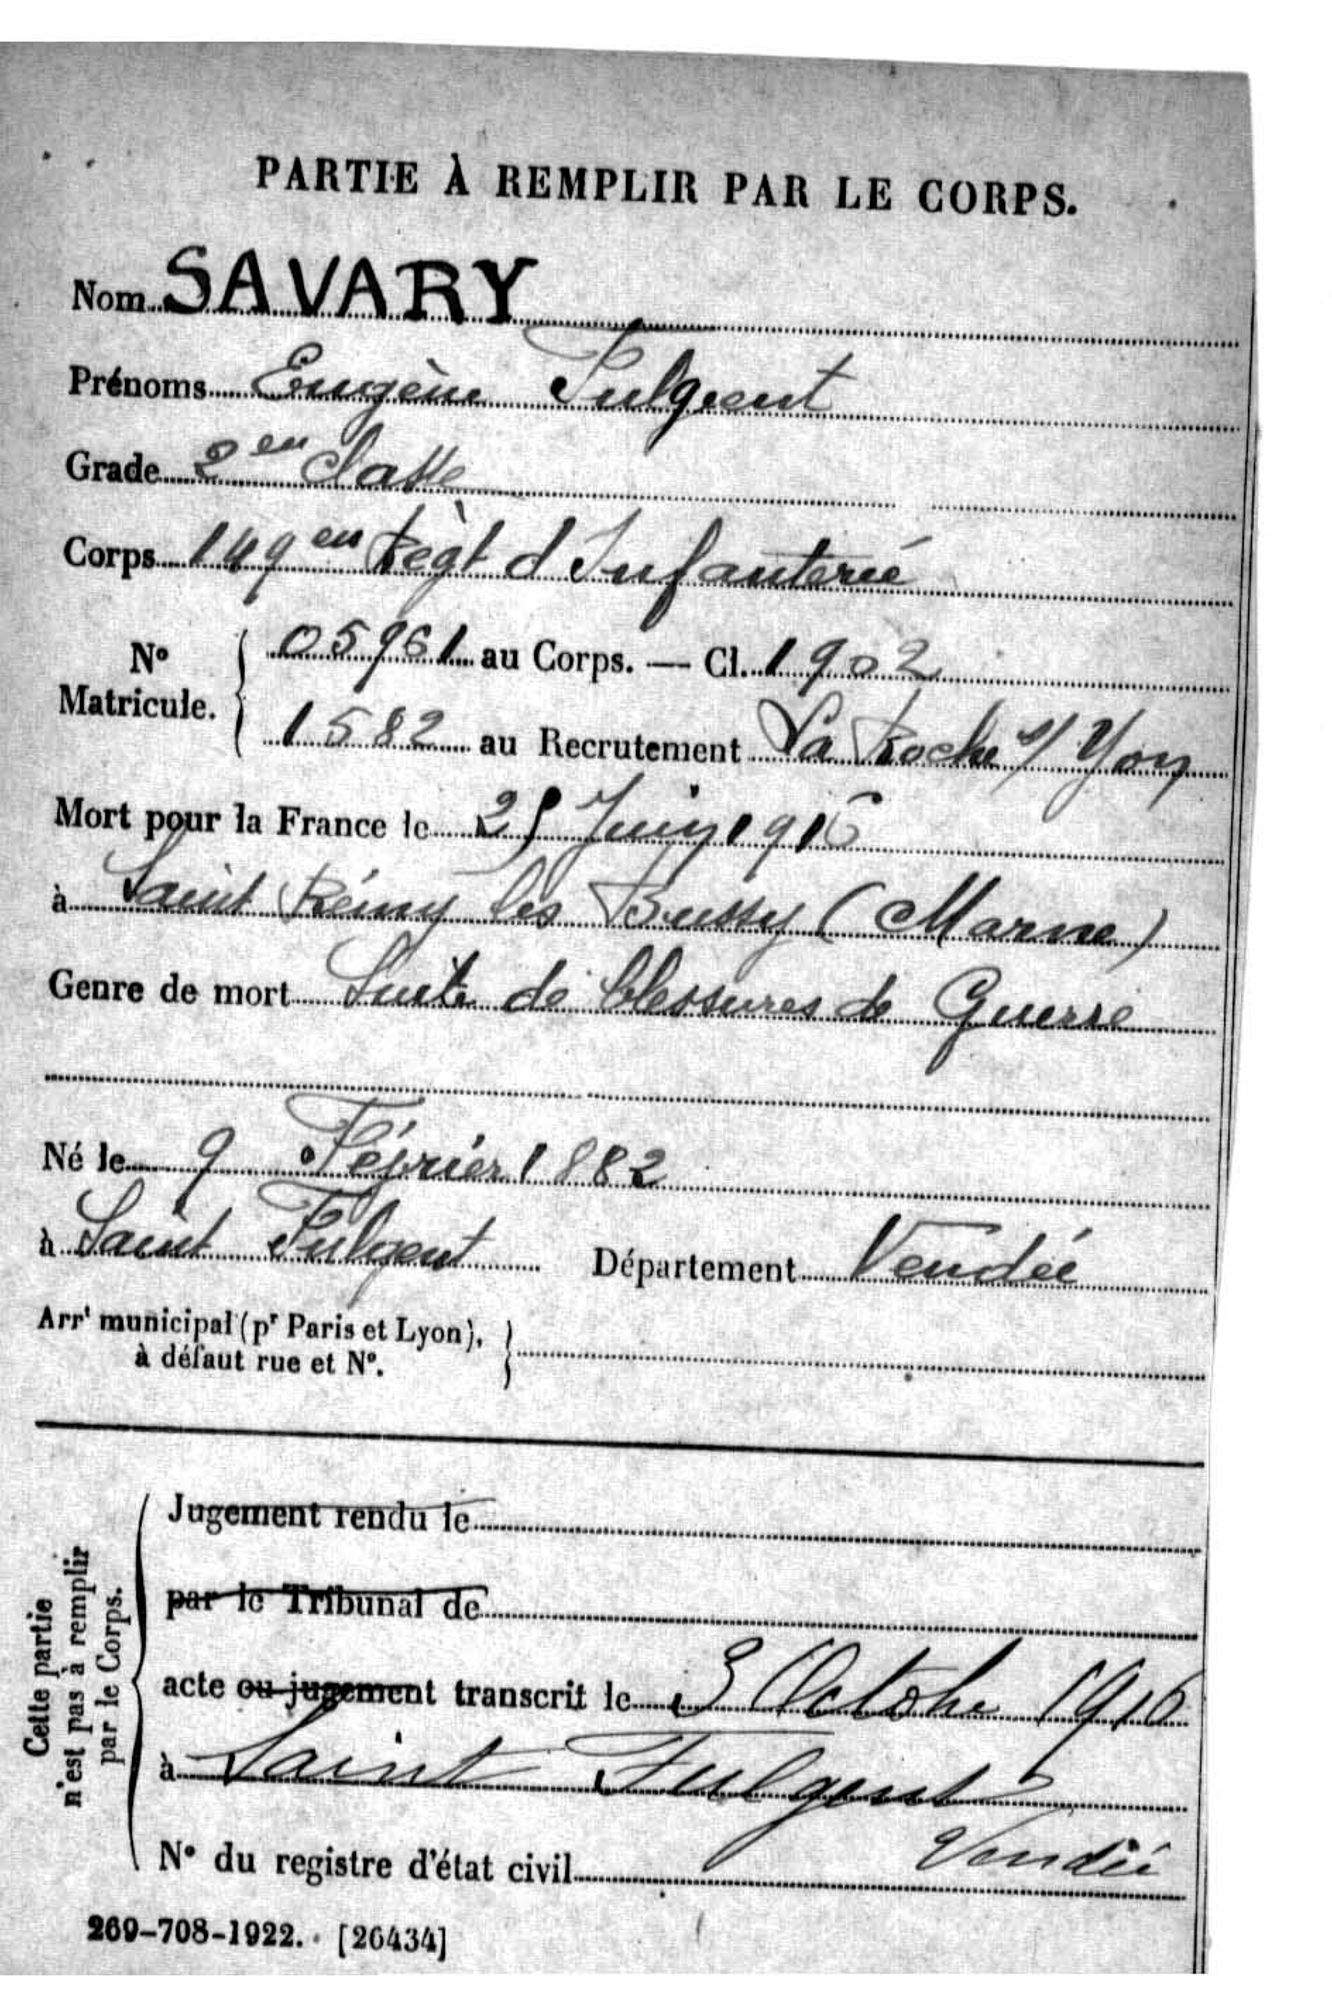 PARTIE À REMPLIR PAR LE CORPS.
Nom SAVARY
Prénoms Eugène Fulgent
Grade 2en classe
Corps 149en Règt d'Infanterie
N° Matricule. 05961 au Corps. — Cl. 1902
1582 au Recrutement La Roche s/ Yon
Mort pour la France le Juin 1916
à Saint Rémy les Bussy (Marne)
Genre de mort Suite de blessures de Guerre
Né le 9 Février 1882
à Saint Fulgent Département Vendée
Arrt municipal (pr Paris et Lyon),
à défaut rue et N°.
Cette partie
n'est pas à remplir
par le Corps.
Jugement rendu le
par le Tribunal de
acte ou jugement transcrit le 3 Octobre 1916
à Saint Fulgent
Vendée
N° du registre d'état civil
269-708-1922. [26434]